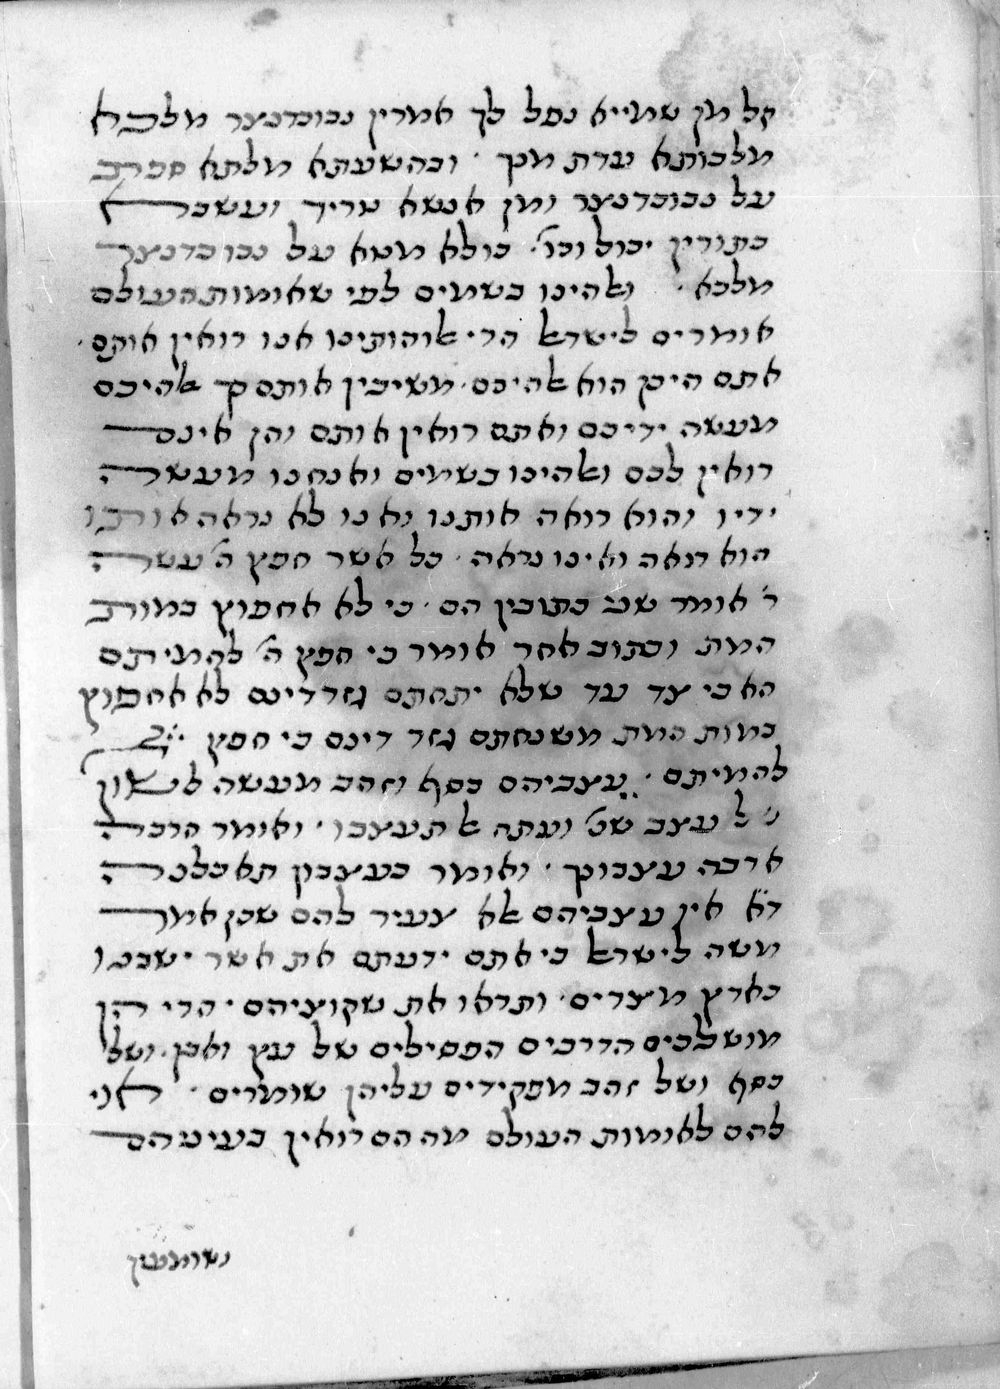 קל מן שמייא נפל לך אמרין נבוכדנצר מלכא
מלכותא עדת מנך ׳ ובהשעתא מלתא ספת
על נבוכדנצר ומן אנשא טריד ועשבא
כתורין יכול וכו׳ כולא מטא על נבוכדנצר
מלכא ׳ ואלהינו בשמים לפי שאומות העולם
אומרים לישראל הרי אלוהותינו אנו רואין אותם ׳
אתם היכן הוא אלהיכם ׳ משיבין אותם כך אלהיכם
מעשה ידיכם ואתם רואין אותם והן אינם
רואין לכם ואלהינו בשמים ואנחנו מעשה
ידיו והוא רואה אותנו ואנו לא נראה אותו
הוא רואה ואינו נראה ׳ כל אשר חפץ ה׳ עשה
ר׳ אומר שני כתובין הם ׳ כי לא אחפוץ במות
המת וכתוב אחר אומר כי חפץ ה׳ להמיתם
הא כי צד עד שלא יחתם גזר דינם לא אחפוץ
במות המת משנחתם גזר דינם כי חפץ ייי
להמיתם ׳ עצביהם כסף וזהב מעשה לשון
של עצב שנ׳ ועתה אל תעצבו ׳ ואומר הרבה
ארבה עצבונך ׳ ואומר בעצבון תאכלנה
ד״א אין עצביהם אלא צעיר להם שכן אמר
משה לישראל כי אתם ידעתם את אשר ישבנו
בארץ מצרים ׳ ותראו את שקוציהם ׳ הרי הן
מושלכים הדרכים הפסילים של עץ ואבן ׳ ושל
כסף ושל זהב מפקידים עליהן שומרים ׳ אוי
להם לאומות העולם מה הם רואין בעיניהם